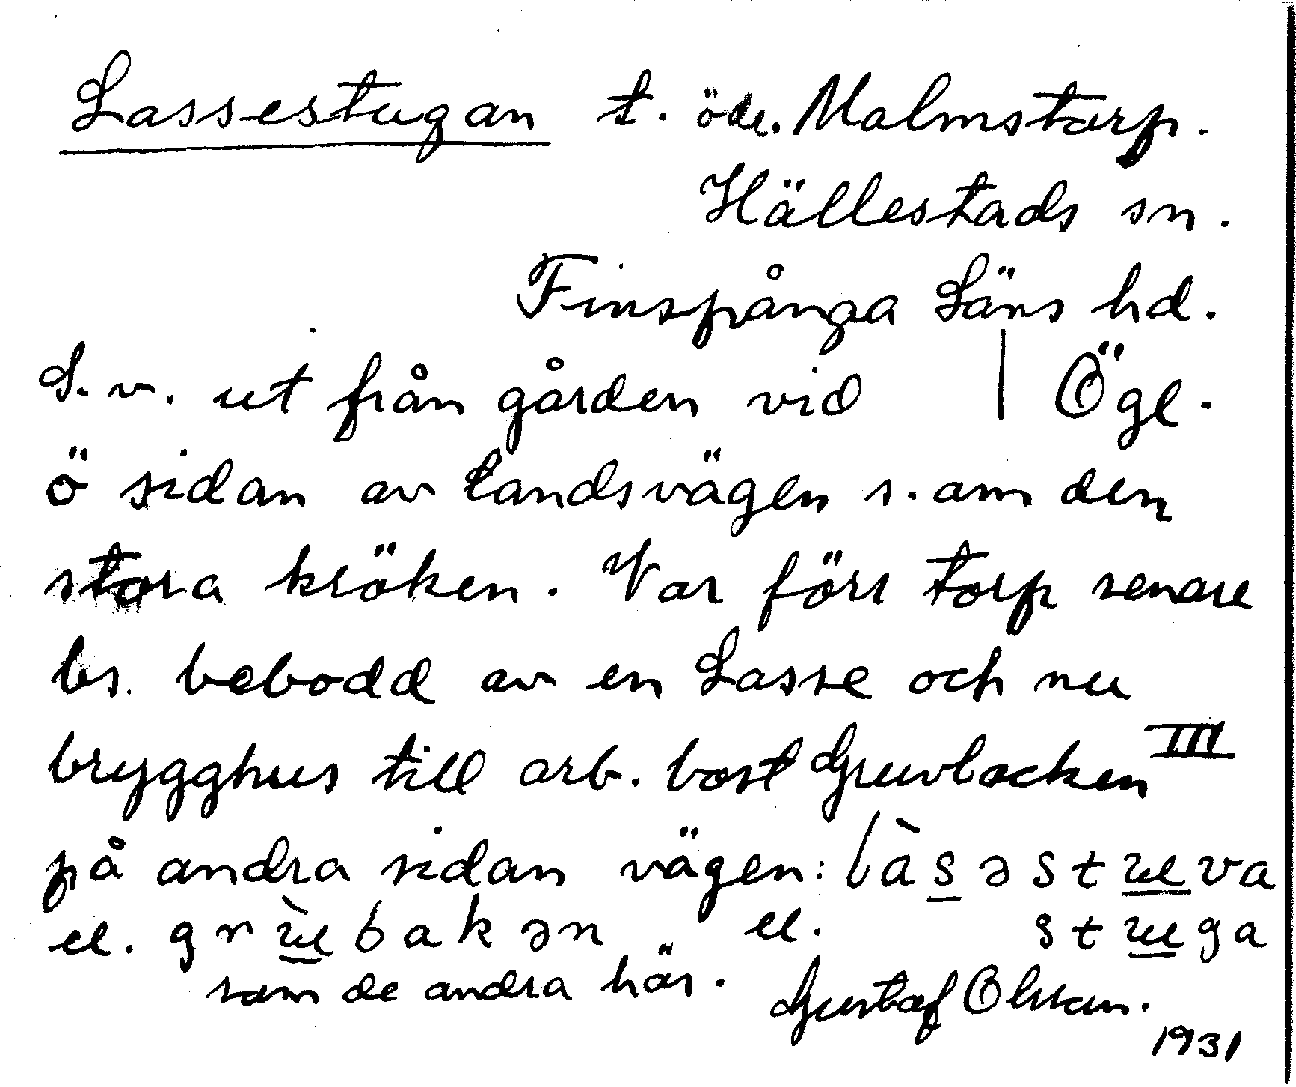 Lassestugan t. öde. Malmstorp.
Hällestads sn.
Finspånga Läns hd.
S.v. ut från gården vid | Ögl.
ö sidan av landsvägen s. om den
stora kröken. Var förr torp senare
bs. bebodd av en Lasse och nu
brygghus till arb. bost Gruvbacken III
på andra sidan vägen: làsəstuva
el. grùbakən el. stuga
som de andra här. Gustaf Olsson.
1931